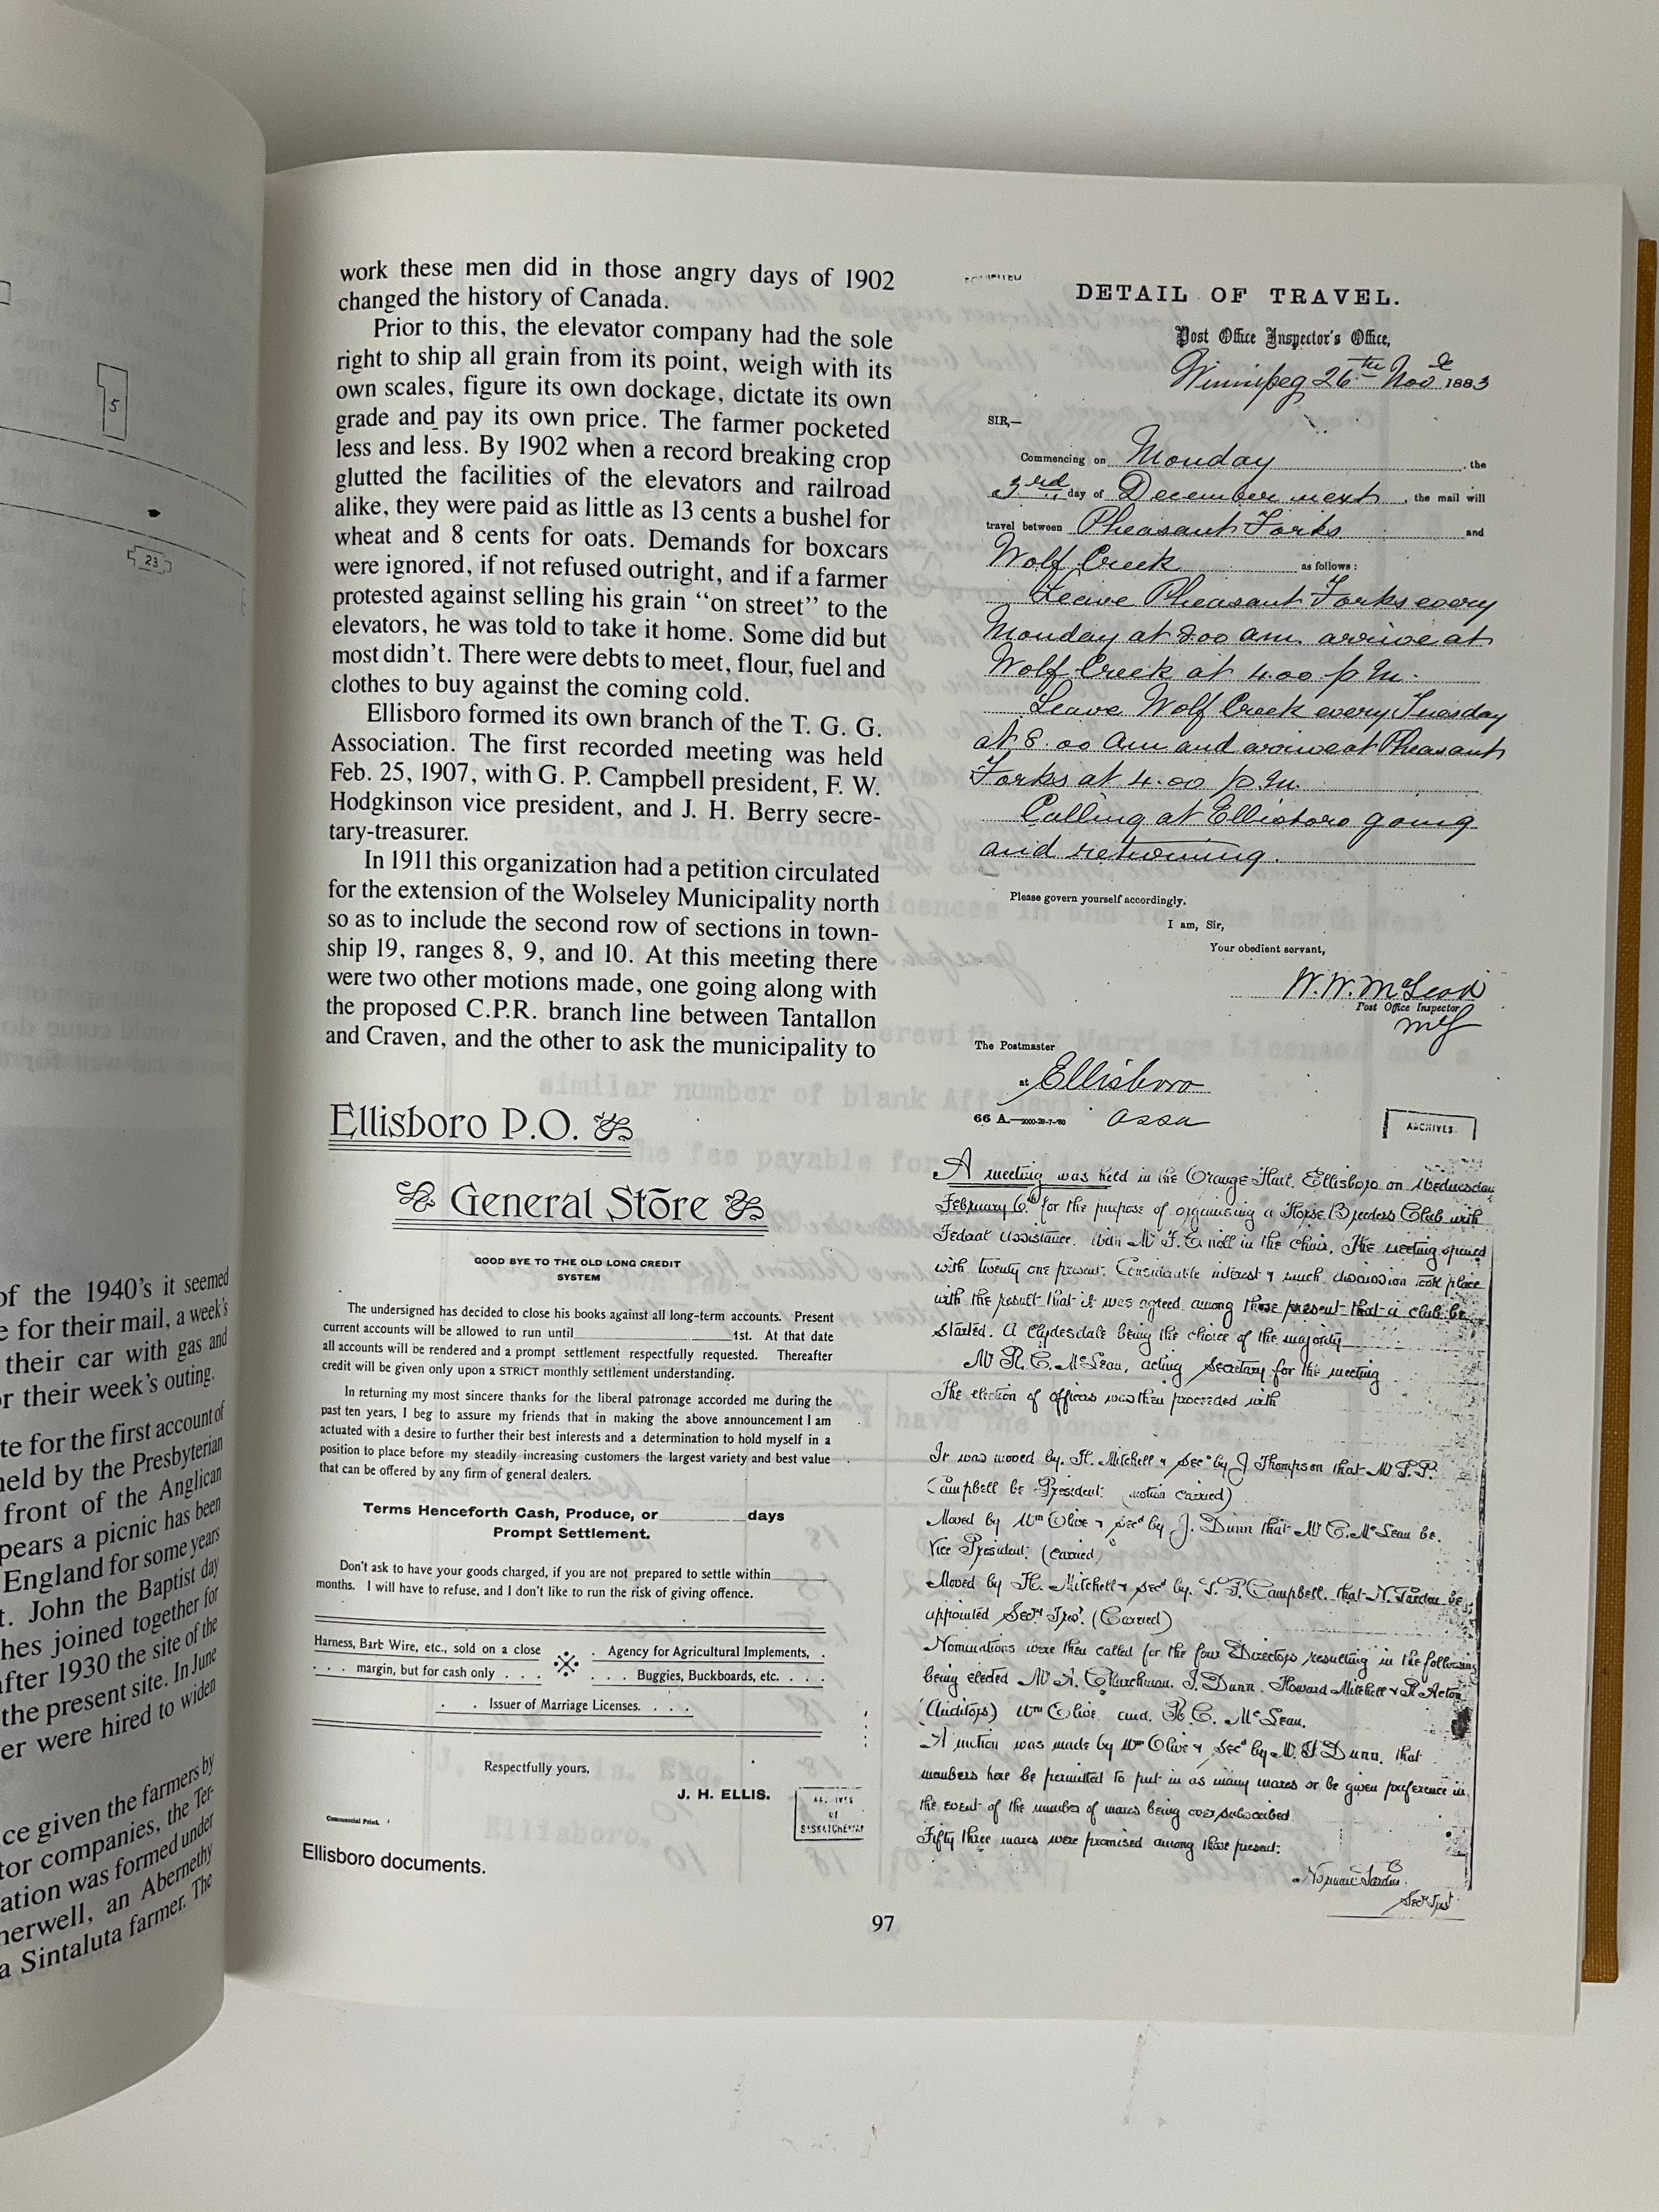 5
23
of the 1940's it seemed
e for their mail, a week's
their car with gas and
or their week's outing.
te for the first account of
held by the Presbyterian
front of the Anglican
pears a picnic has been
England for some years
t. John the Baptist day
hes joined together for
after 1930 the site of the
the present site. In June
er were hired to widen
ce given the farmers by
tor companies, the Ter-
ation was formed under
herwell, an Abernethy
a Sintaluta farmer. The
work these men did in those angry days of 1902
changed the history of Canada.
Prior to this, the elevator company had the sole
right to ship all grain from its point, weigh with its
own scales, figure its own dockage, dictate its own
grade and pay its own price. The farmer pocketed
less and less. By 1902 when a record breaking crop
glutted the facilities of the elevators and railroad
alike, they were paid as little as 13 cents a bushel for
wheat and 8 cents for oats. Demands for boxcars
were ignored, if not refused outright, and if a farmer
protested against selling his grain ‘‘on street’’ to the
elevators, he was told to take it home. Some did but
most didn't. There were debts to meet, flour, fuel and
clothes to buy against the coming cold.
Ellisboro formed its own branch of the T. G. G.
Association. The first recorded meeting was held
Feb. 25, 1907, with G. P. Campbell president, F. W.
Hodgkinson vice president, and J. H. Berry secre-
tary-treasurer.
In 1911 this organization had a petition circulated
for the extension of the Wolseley Municipality north
so as to include the second row of sections in town-
ship 19, ranges 8, 9, and 10. At this meeting there
were two other motions made, one going along with
the proposed C.P.R. branch line between Tantallon
and Craven, and the other to ask the municipality to
Ellisboro P.O.
General Store
GOOD BYE TO THE OLD LONG CREDIT
SYSTEM
The undersigned has decided to close his books against all long-term accounts. Present
current accounts will be allowed to run until 1st. At that date
all accounts will be rendered and a prompt settlement respectfully requested. Thereafter
credit will be given only upon a STRICT monthly settlement understanding.
In returning my most sincere thanks for the liberal patronage accorded me during the
past ten years, I beg to assure my friends that in making the above announcement I am
actuated with a desire to further their best interests and a determination to hold myself in a
position to place before my steadily increasing customers the largest variety and best value
that can be offered by any firm of general dealers.
Terms Henceforth Cash, Produce, or days
Prompt Settlement.
Don't ask to have your goods charged, if you are not prepared to settle within
months. I will have to refuse, and I don't like to run the risk of giving offence.
Harness, Barb Wire, etc., sold on a close
. . . margin, but for cash only . . .
. Agency for Agricultural Implements, .
. . . Buggies, Buckboards, etc. . . .
. . Issuer of Marriage Licenses. . . .
Respectfully yours,
J. H. ELLIS.
Commercial Print.
ARCHIVES
OF
SASKATCHEWAN
Ellisboro documents.
DETAIL OF TRAVEL.
Post Office Inspector's Office,
Winnipeg 26th Nov 1883
SIR,—
Commencing on Monday, the
3rd day of December next, the mail will
travel between Pheasant Forks and
Wolf Creek as follows:
Leave Pheasant Forks every
Monday at 8.00 am. arrive at
Wolf Creek at 4.00 p.m.
Leave Wolf Creek every Tuesday
at 8.00 am and arrive at Pheasant
Forks at 4.00 p.m.
Calling at Ellisboro going
and returning.
Please govern yourself accordingly.
I am, Sir,
Your obedient servant,
W. W. McLeod
Post Office Inspector
The Postmaster
at Ellisboro
Assa
66 A.—2000-29-7-'80
ARCHIVES
A meeting was held in the Orange Hall, Ellisboro on Wednesday
February 6th for the purpose of organising a Horse Breeders Club with
Federal assistance. With Mr in the chair. The meeting opened
with twenty one present. Considerable interest & much discussion took place
with the result that it was agreed among those present that a club be
started. A Clydesdale being the choice of the majority
Mr R. C. McLean, acting Secretary for the meeting
The election of officers was then proceeded with
It was moved by H. Mitchell & Secd by J Thompson that Mr
Campbell be President. (motion carried)
Moved by Wm Olive & Secd by J. Dunn that Mr C. McLean be.
Vice President. (carried)
Moved by H. Mitchell & Secd by Campbell. that N. be
appointed (Carried)
Nominations were then called for the four Directors resulting in the following
being elected Mr A. Churchman. J. Dunn. Howard Mitchell & R Acton
(Auditors) Wm Olive and R. C. McLean.
A motion was made by Wm Olive & Secd by Dunn. that
members here be permitted to put in as many mares or be given preference in
the event of the number of mares being over subscribed
Fifty three mares were promised among those present.
Norman
97